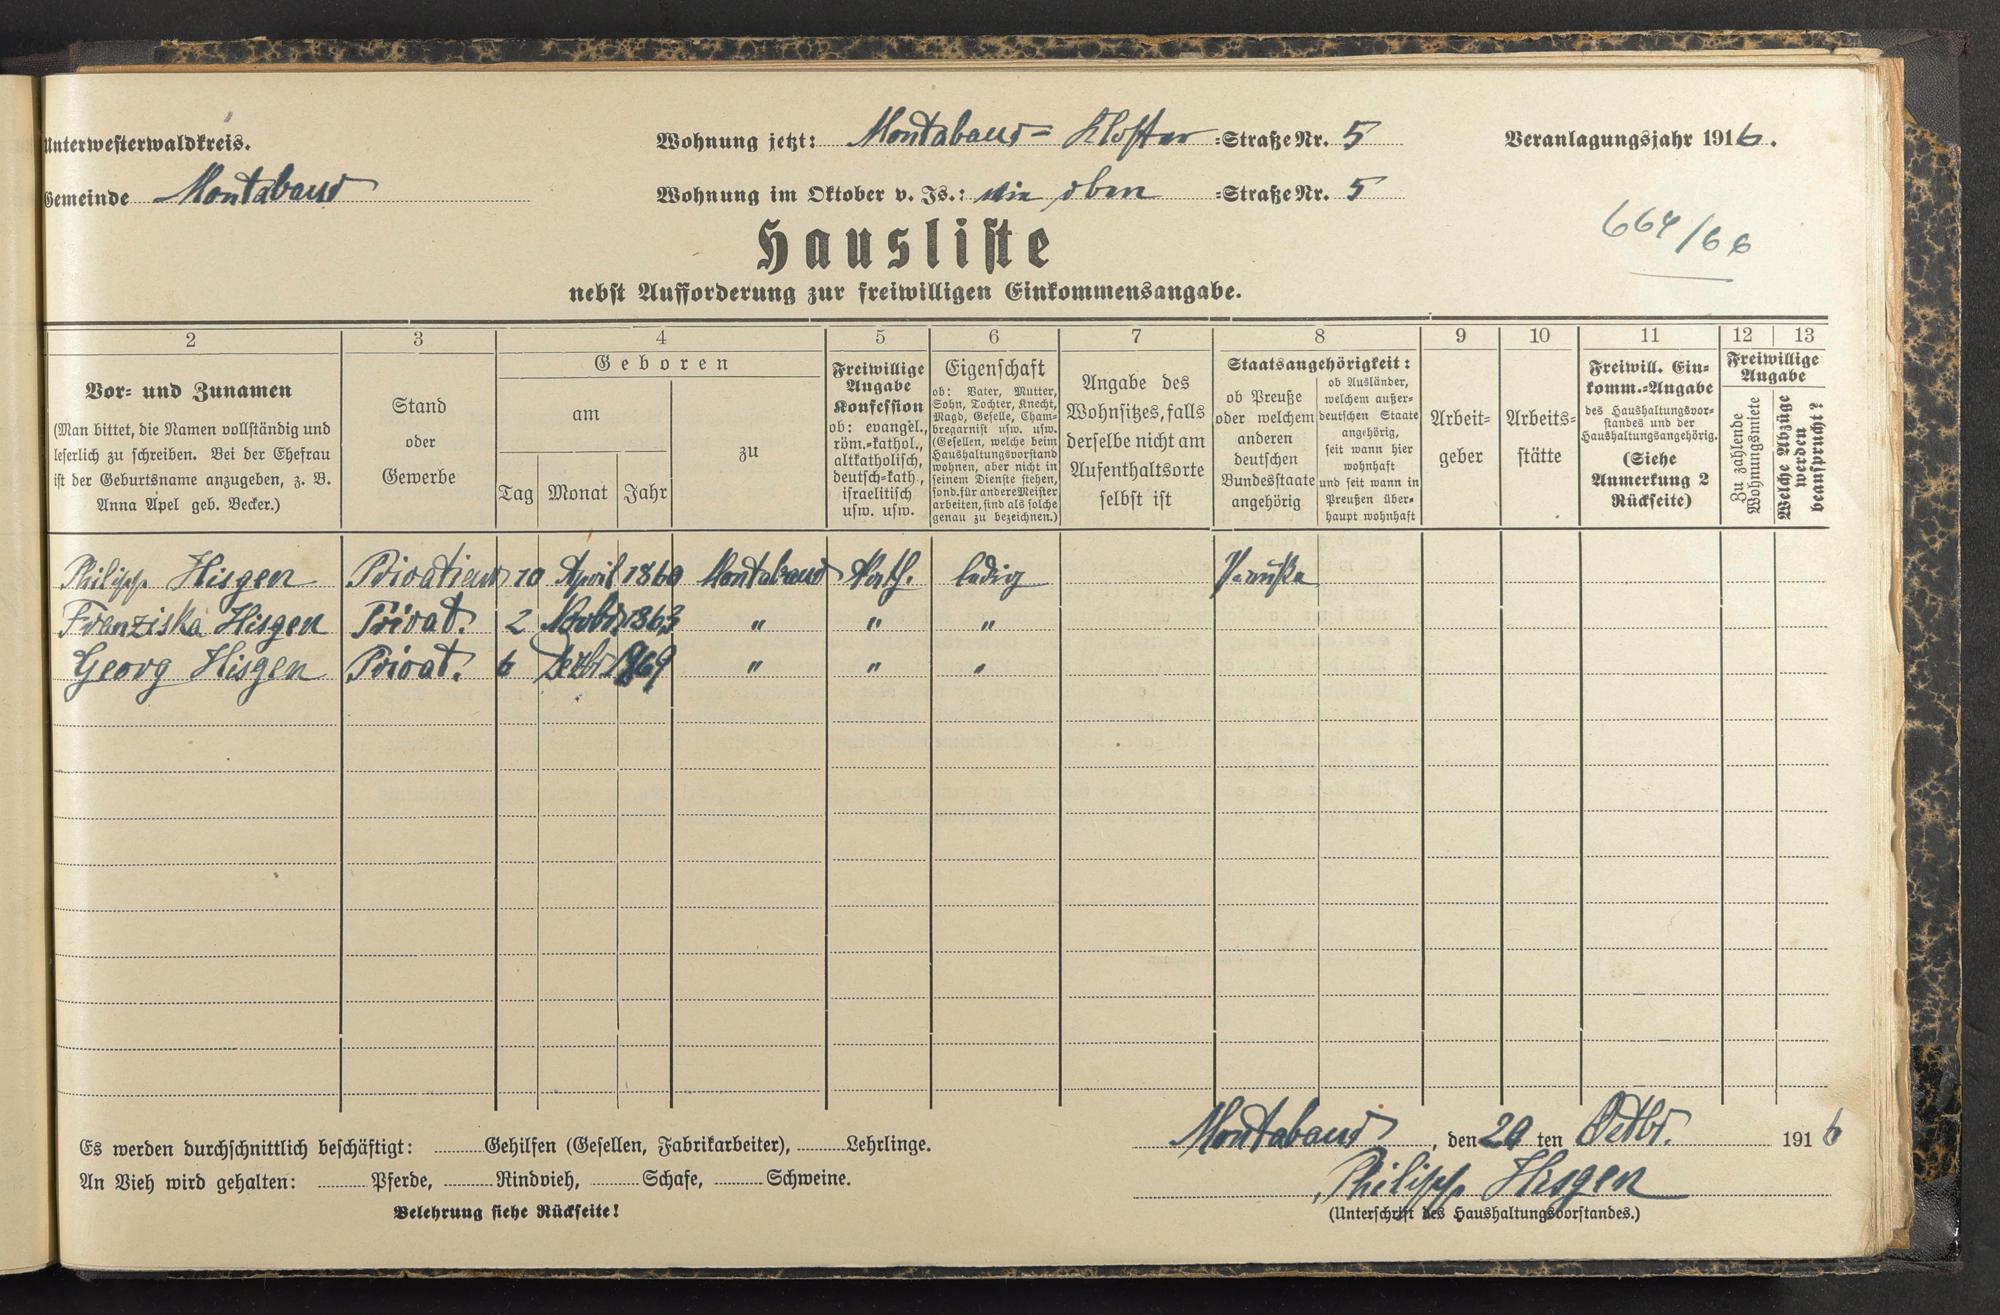 Unterwesterwaldkreis.
Wohnung jetzt: Montabaur = Kloster =Straße Nr. 5
Veranlagungsjahr 1916.
Gemeinde Montabaur
Wohnung im Oktober v. Js.: wie oben =Straße Nr. 5
664/66
Hausliste
nebst Aufforderung zur freiwilligen Einkommensangabe.
2 3 4 5 6 7 8 9 10 11 12 13
Vor- und Zunamen
(Man bittet, die Namen vollständig und
leserlich zu schreiben. Bei der Ehefrau
ist der Geburtsname anzugeben, z. B.
Anna Apel geb. Becker.)
Stand
oder
Gewerbe
Geboren
am
Tag Monat Jahr
zu
Freiwillige
Angabe
Konfession
ob: evangel.,
röm.-kathol.,
altkatholisch,
deutsch-kath.,
israelitisch
usw. usw.
Eigenschaft
ob: Vater, Mutter,
Sohn, Tochter, Knecht,
Magd, Geselle, Cham-
bregarnist usw. usw.
(Gesellen, welche beim
Haushaltungsvorstand
wohnen, aber nicht in
seinem Dienste stehen,
sond. für andere Meister
arbeiten, sind als solche
genau zu bezeichnen.)
Angabe des
Wohnsitzes, falls
derselbe nicht am
Aufenthaltsorte
selbst ist
Staatsangehörigkeit:
ob Preuße
oder welchem
anderen
deutschen
Bundesstaate
angehörig
ob Ausländer,
welchem außer-
deutschen Staate
angehörig,
seit wann hier
wohnhaft
und seit wann in
Preußen über-
haupt wohnhaft
Arbeit-
geber
Arbeits-
stätte
Freiwill. Ein-
komm.-Angabe
des Haushaltungsvor-
standes und der
Haushaltungsangehörig.
(Siehe
Anmerkung 2
Rückseite)
Freiwillige
Angabe
Zu zahlende
Wohnungsmiete
Welche Abzüge
werden
beansprucht?
Philipp Hisgen Privatier 10 April 1860 Montabaur Kath. ledig Preuße
Franziska Hisgen Privat. 2 Novbr 1863 " " "
Georg Hisgen Privat. 6 Dezbr 1869 " " "
Es werden durchschnittlich beschäftigt: Gehilfen (Gesellen, Fabrikarbeiter), Lehrlinge.
An Vieh wird gehalten: Pferde, Rindvieh, Schafe, Schweine.
Belehrung siehe Rückseite!
Montabaur, den 20 ten Octbr. 1916
Philipp Hisgen
(Unterschrift des Haushaltungsvorstandes.)